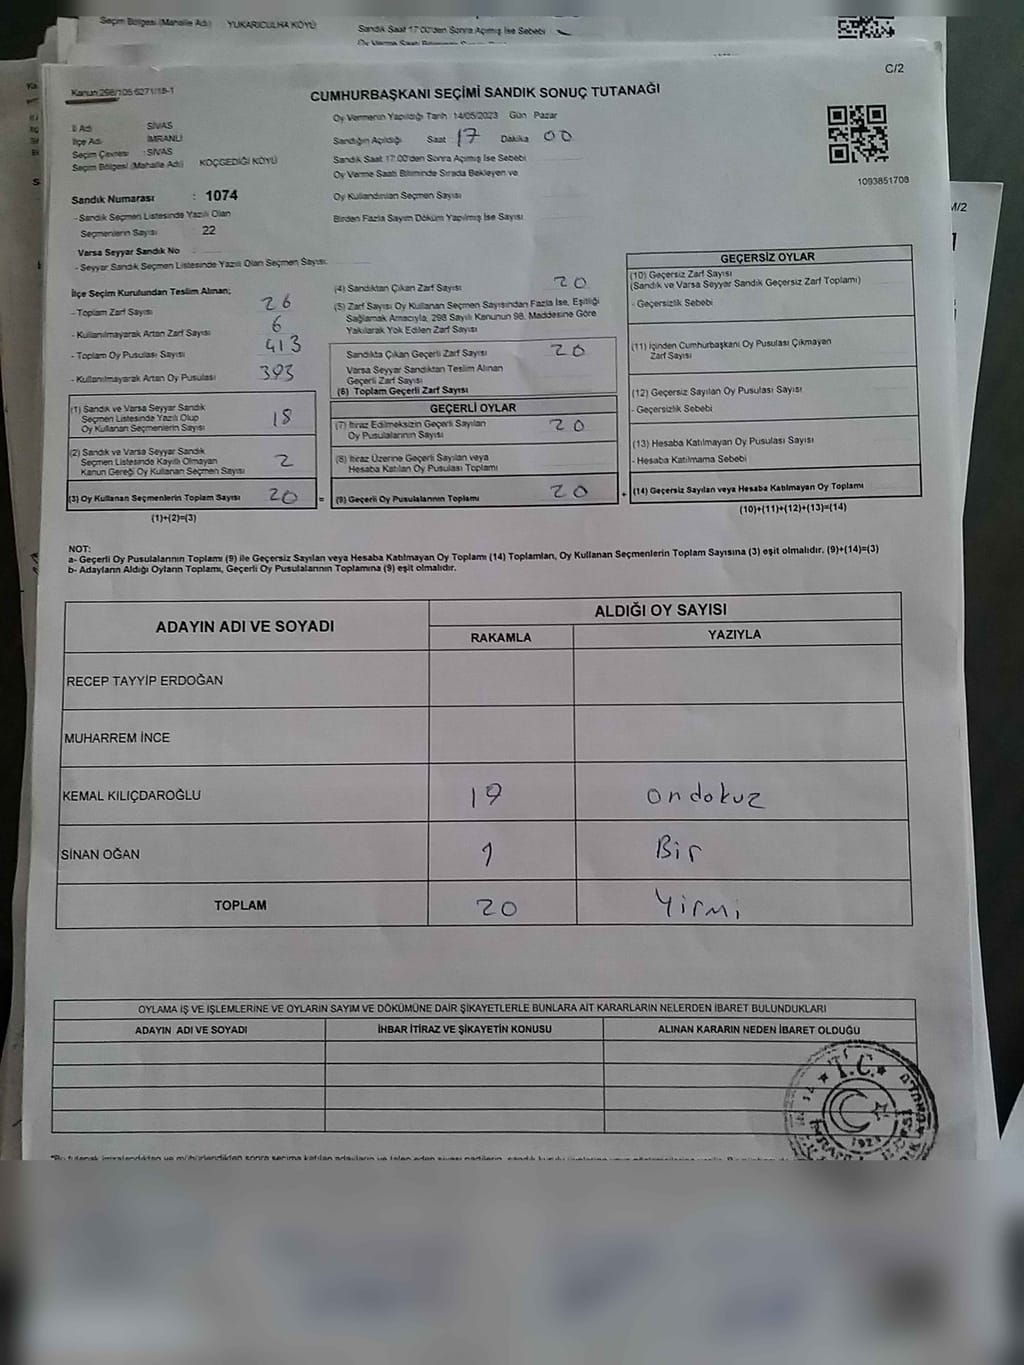 Seçim Bölgesi (Mahalle Adı) YUKARICULHA KÖYÜ
Sandık Saat 17:00'den Sonra Açımış İse Sebebi
C/2
Kanun:298/105 6271/18-1
CUMHURBAŞKANI SEÇİMİ SANDIK SONUÇ TUTANAĞI
İl Adı SİVAS
İlçe Adı İMRANLI
Seçim Çevresi : SİVAS
Seçim Bölgesi (Mahalle Adı) KOÇGEDİĞİ KÖYÜ
Oy Vermenin Yapıldığı Tarih :14/05/2023 Gün Pazar
Sandığın Açıldığı Saat : 17 Dakika 00
Sandık Saat 17:00'den Sonra Açımış İse Sebebi
Oy Verme Saati Bitiminde Sırada Bekleyen ve
Oy Kullandırılan Seçmen Sayısı
Birden Fazla Sayım Döküm Yapılmış İse Sayısı
1093851708
M/2
Sandık Numarası : 1074
- Sandık Seçmen Listesinde Yazılı Olan
Seçmenlerin Sayısı 22
Varsa Seyyar Sandık No
- Seyyar Sandık Seçmen Listesinde Yazılı Olan Seçmen Sayısı:
İlçe Seçim Kurulundan Teslim Alınan;
- Toplam Zarf Sayısı 26
- Kullanılmayarak Artan Zarf Sayısı 6
- Toplam Oy Pusulası Sayısı 413
- Kullanılmayarak Artan Oy Pusulası 393
(1) Sandık ve Varsa Seyyar Sandık
Seçmen Listesinde Yazılı Olup
Oy Kullanan Seçmenlerin Sayısı 18
(2) Sandık ve Varsa Seyyar Sandık
Seçmen Listesinde Kayıtlı Olmayan
Kanun Gereği Oy Kullanan Seçmen Sayısı 2
(3) Oy Kullanan Seçmenlerin Toplam Sayısı 20 =
(1)+(2)=(3)
(4) Sandıktan Çıkan Zarf Sayısı 20
(5) Zarf Sayısı Oy Kullanan Seçmen Sayısından Fazla İse, Eşitliği
Sağlamak Amacıyla, 298 Sayılı Kanunun 98. Maddesine Göre
Yakılarak Yok Edilen Zarf Sayısı
Sandıkta Çıkan Geçerli Zarf Sayısı 20
Varsa Seyyar Sandıktan Teslim Alınan
Geçerli Zarf Sayısı
(6) Toplam Geçerli Zarf Sayısı
GEÇERLİ OYLAR
(7) İtiraz Edilmeksizin Geçerli Sayılan
Oy Pusulalarının Sayısı 20
(8) İtiraz Üzerine Geçerli Sayılan veya
Hesaba Katılan Oy Pusulası Toplamı
(9) Geçerli Oy Pusulalarının Toplamı 20 +
GEÇERSİZ OYLAR
(10) Geçersiz Zarf Sayısı
(Sandık ve Varsa Seyyar Sandık Geçersiz Zarf Toplamı)
- Geçersizlik Sebebi
(11) İçinden Cumhurbaşkanı Oy Pusulası Çıkmayan
Zarf Sayısı
(12) Geçersiz Sayılan Oy Pusulası Sayısı
- Geçersizlik Sebebi
(13) Hesaba Katılmayan Oy Pusulası Sayısı
- Hesaba Katılmama Sebebi
(14) Geçersiz Sayılan veya Hesaba Katılmayan Oy Toplamı
(10)+(11)+(12)+(13)=(14)
NOT:
a- Geçerli Oy Pusulalarının Toplamı (9) ile Geçersiz Sayılan veya Hesaba Katılmayan Oy Toplamı (14) Toplamları, Oy Kullanan Seçmenlerin Toplam Sayısına (3) eşit olmalıdır. (9)+(14)=(3)
b- Adayların Aldığı Oyların Toplamı, Geçerli Oy Pusulalarının Toplamına (9) eşit olmalıdır.
ADAYIN ADI VE SOYADI
ALDIĞI OY SAYISI
RAKAMLA YAZIYLA
RECEP TAYYİP ERDOĞAN
MUHARREM İNCE
KEMAL KILIÇDAROĞLU 19 ondokuz
SİNAN OĞAN 1 Bir
TOPLAM 20 Yirmi
OYLAMA İŞ VE İŞLEMLERİNE VE OYLARIN SAYIM VE DÖKÜMÜNE DAİR ŞİKAYETLERLE BUNLARA AİT KARARLARIN NELERDEN İBARET BULUNDUKLARI
ADAYIN ADI VE SOYADI İHBAR İTİRAZ VE ŞİKAYETİN KONUSU ALINAN KARARIN NEDEN İBARET OLDUĞU
T.C.